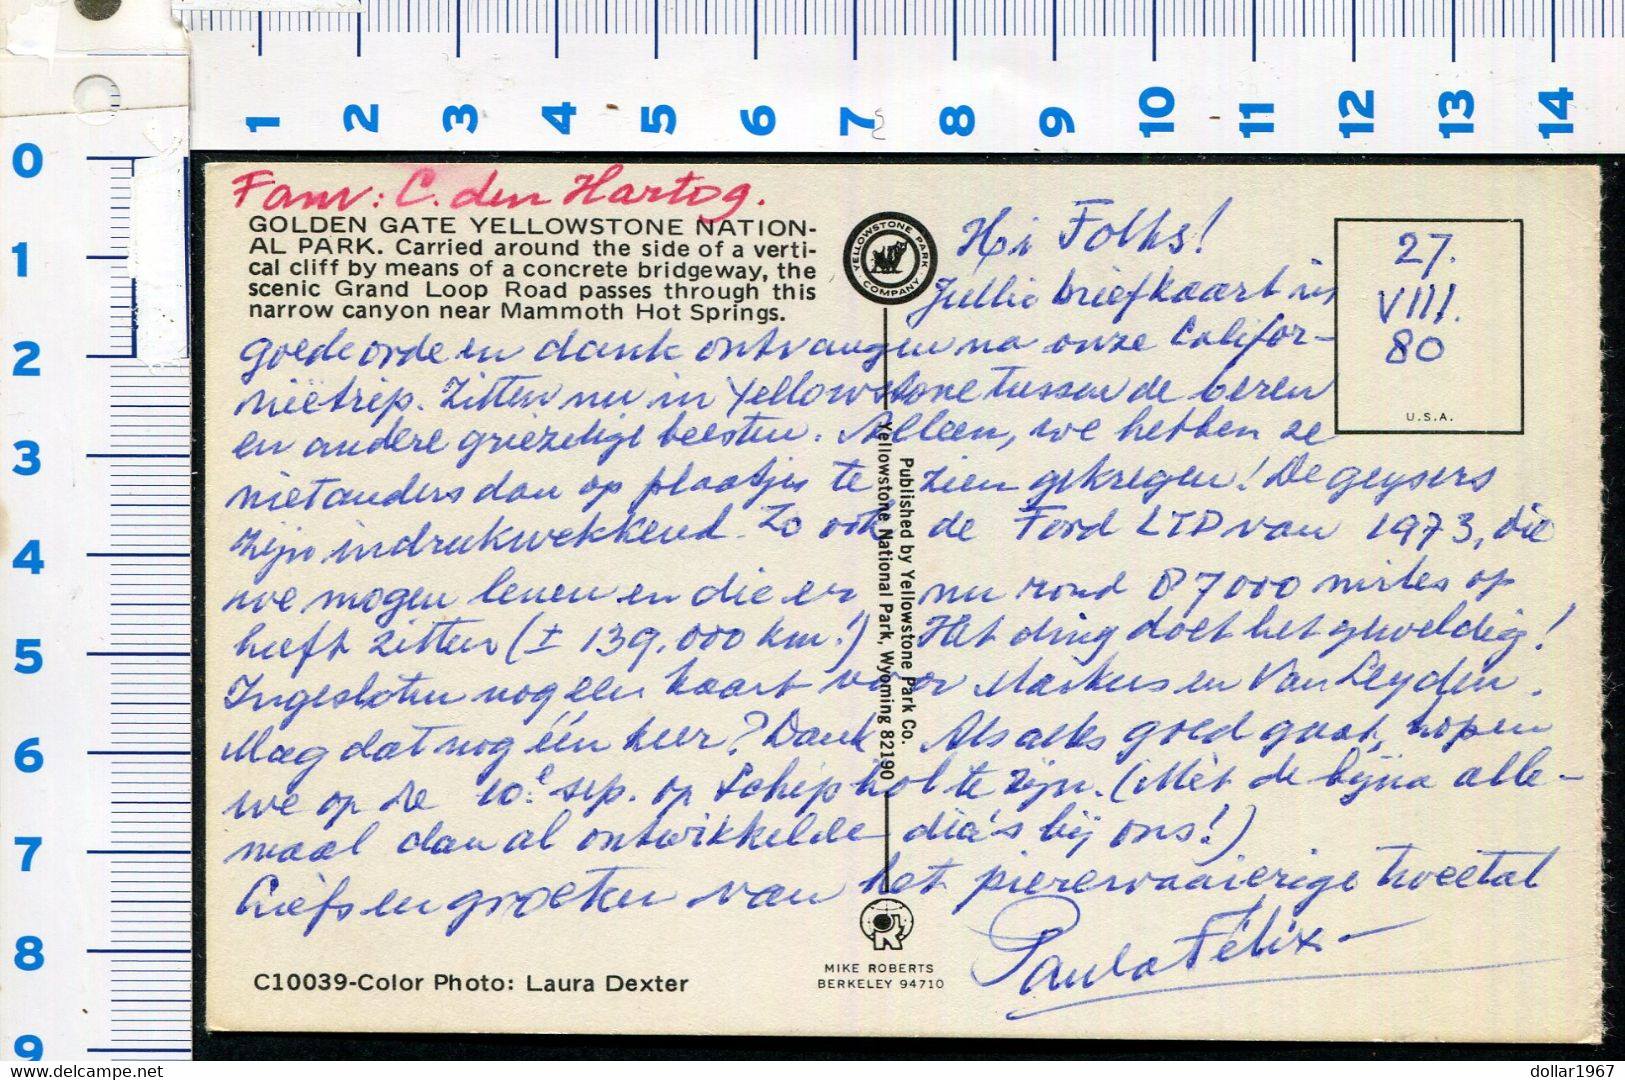 1 2 3 4 5 6 7 8 9 10 11 12 13 14
0
1
2
3
4
5
6
7
8
9
Fam: C. den Hartog.
GOLDEN GATE YELLOWSTONE NATION-
AL PARK. Carried around the side of a verti-
cal cliff by means of a concrete bridgeway, the
scenic Grand Loop Road passes through this
narrow canyon near Mammoth Hot Springs.
YELLOWSTONE PARK
COMPANY
27.
VIII.
80
U.S.A.
Hi Folks!
Jullie briefkaart in
goede orde en dank ontvangen na onze Califor-
niëtrip. Zitten nu in Yellowstone tussen de beren
en andere griezelige beesten. Alleen, we hebben ze
niet anders dan op plaatjes te zien gekregen! De geysers
zijn indrukwekkend. Zo ook de Ford LTD van 1973, die
we mogen lenen en die er nu rond 87000 miles op
heeft zitten (± 139.000 km!) Het ding doet het geweldig!
Ingesloten nog een kaart voor Markus en Van Leyden.
Mag dat nog één keer? Dank Als alles goed gaat, hopen
we op de 10e sep. op Schiphol te zijn. (Mèt de bijna alle-
maal dan al ontwikkelde dia's bij ons!)
Liefs en groeten van het pierewaaierige tweetal
Paula Félix
Published by Yellowstone Park Co.
Yellowstone National Park, Wyoming 82190
C10039-Color Photo: Laura Dexter
MIKE ROBERTS
BERKELEY 94710
The Netherlands
dollar1967